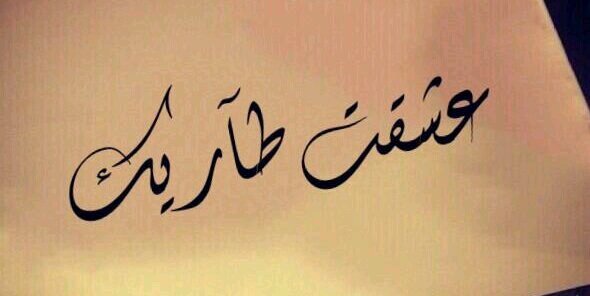 عشقت طآريك